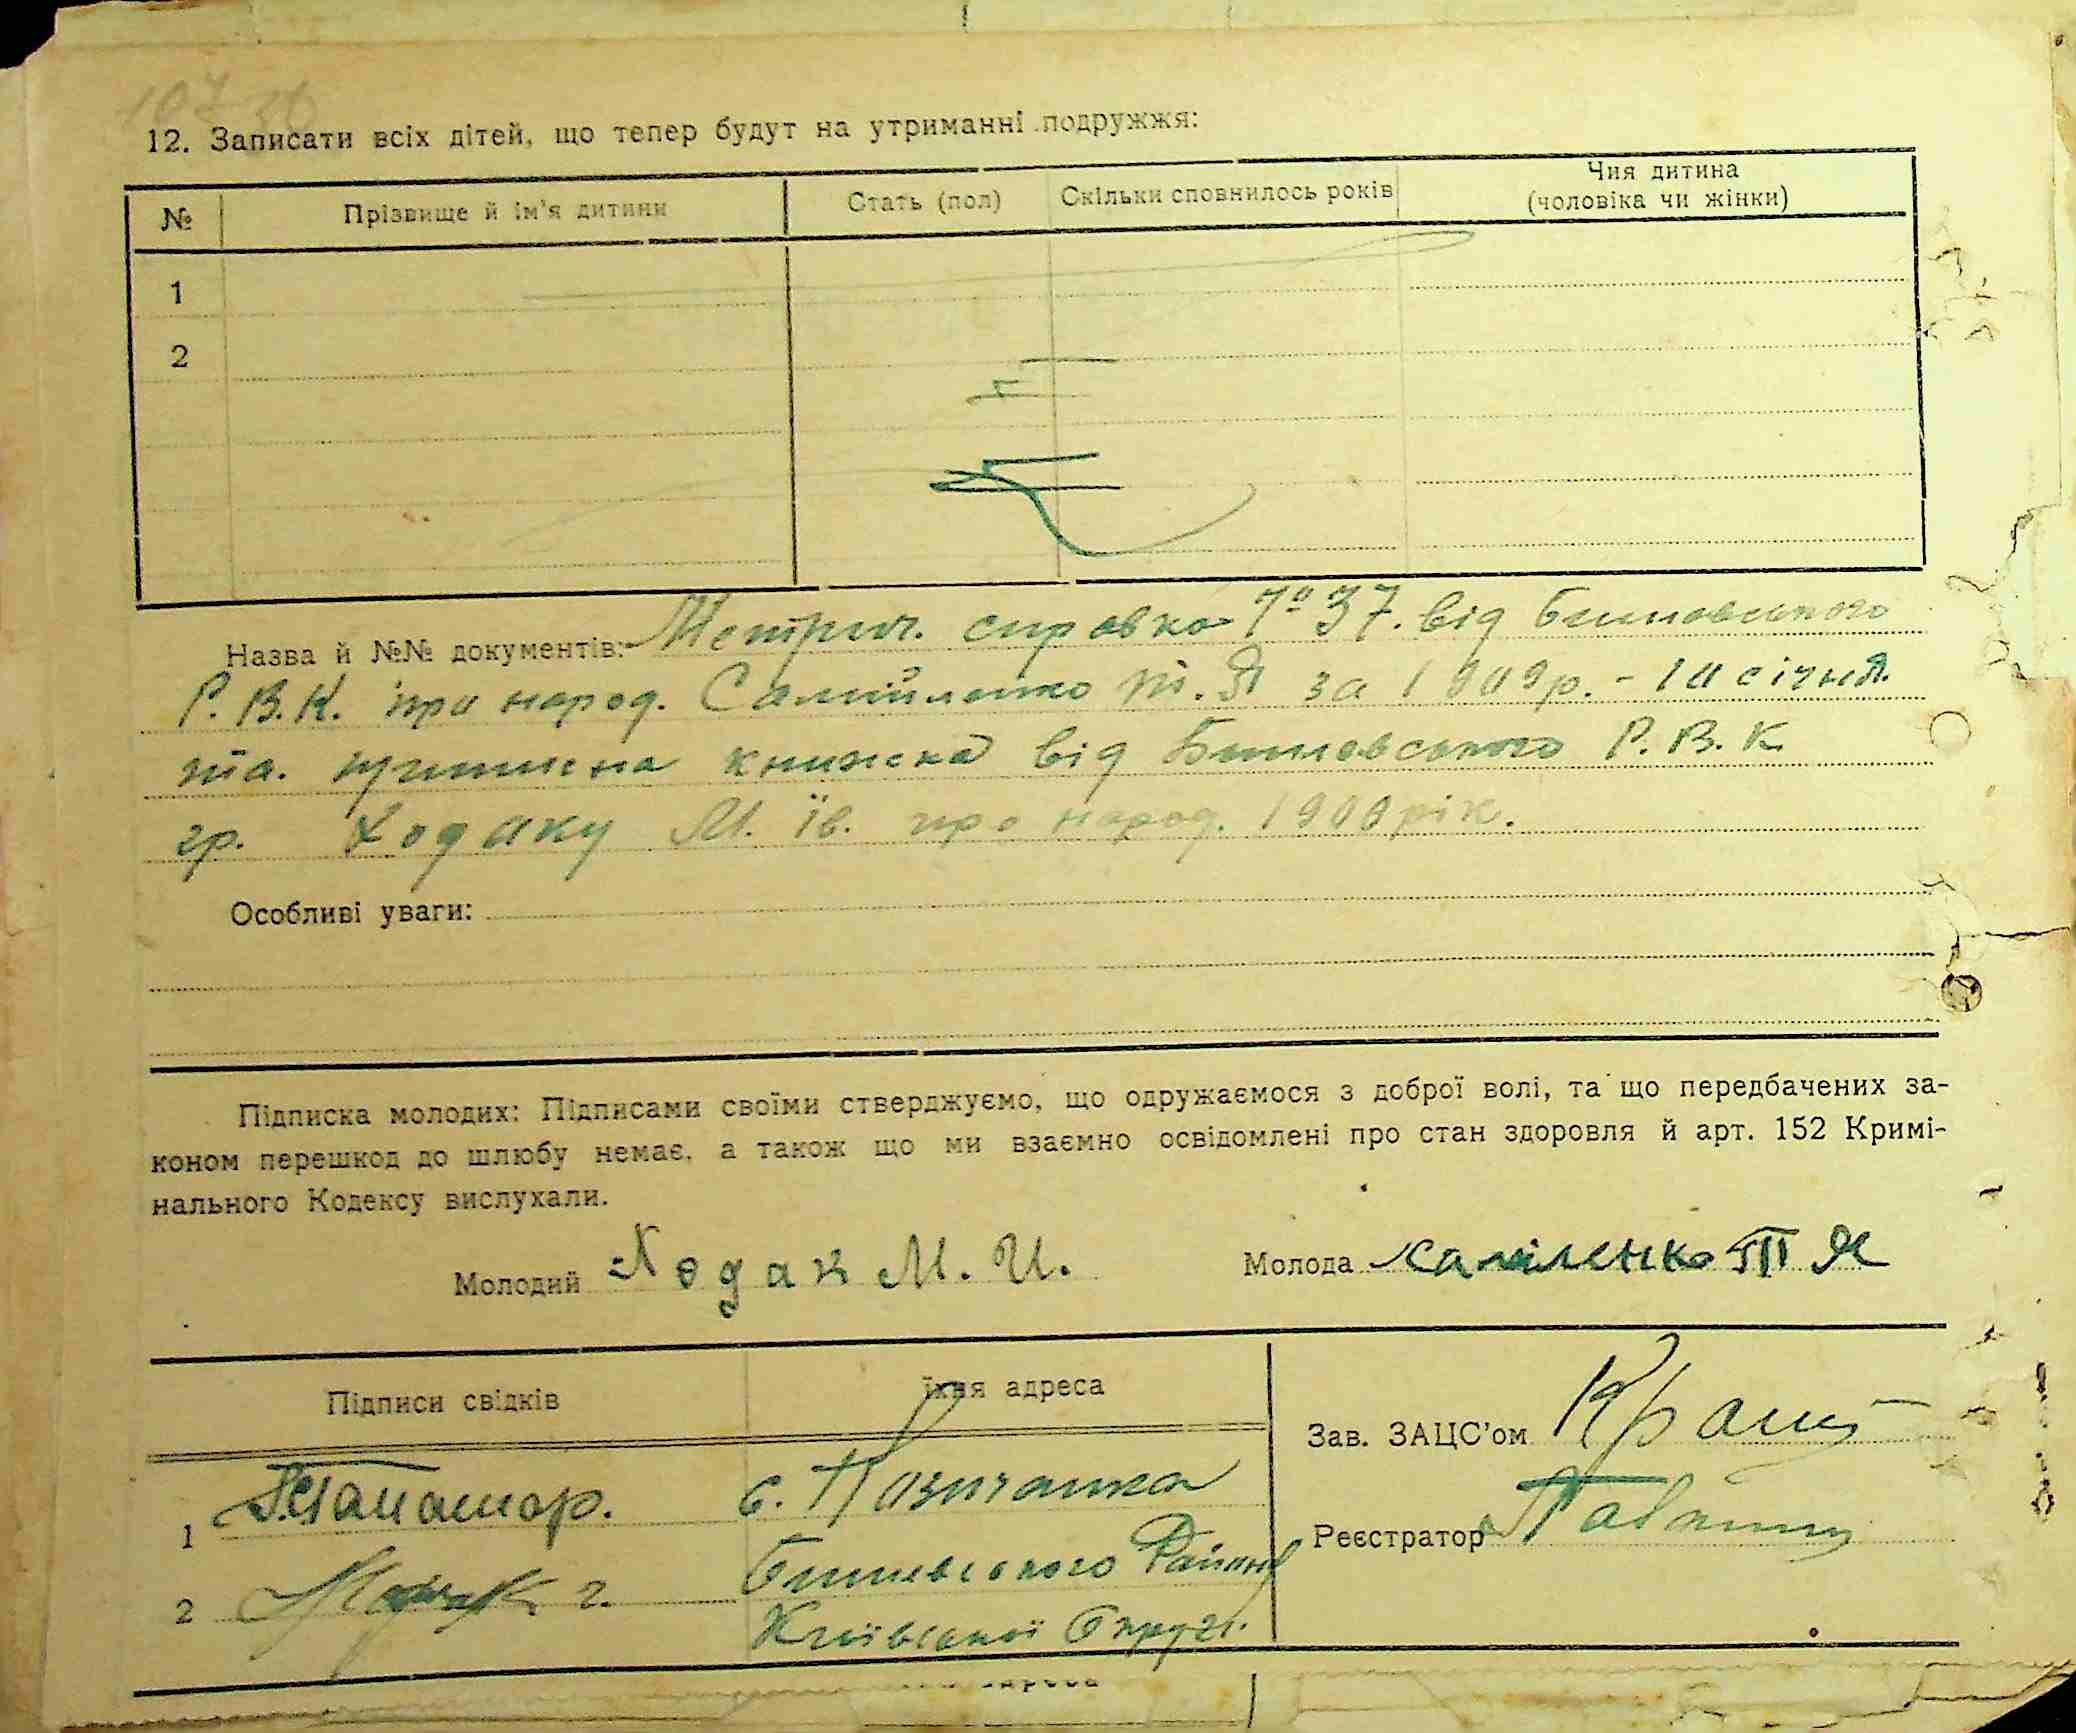 12. Записати всіх дітей, що тепер будут на утриманні подружжя:
№ Прізвище й ім'я дитини Стать (пол) Скільки сповнилось років Чия дитина (чоловіка чи жінки)
1
2
Назва й №№ документів: Метрич. справка № 37. від Бишовського
Р.В.К. про народ. Самійленко Т. Я за 1909р. - 10 січня.
та. книжка від Бишовського Р.В.К
гр. Ходаку М. Ів. про народ. 1909 рік.
Особливі уваги:
Підписка молодих: Підписами своїми стверджуємо, що одружаємося з доброї волі, та що передбачених за-
коном перешкод до шлюбу немає, а також що ми взаємно освідомлені про стан здоровля й арт. 152 Кримі-
нального Кодексу вислухали.
Молодий Ходак М. И. Молода Саміленко Т Я
Підписи свідків Їхня адреса
Зав. ЗАЦС'ом
1 с.
Реєстратор
Бишевського Району
2
Київської Округи.